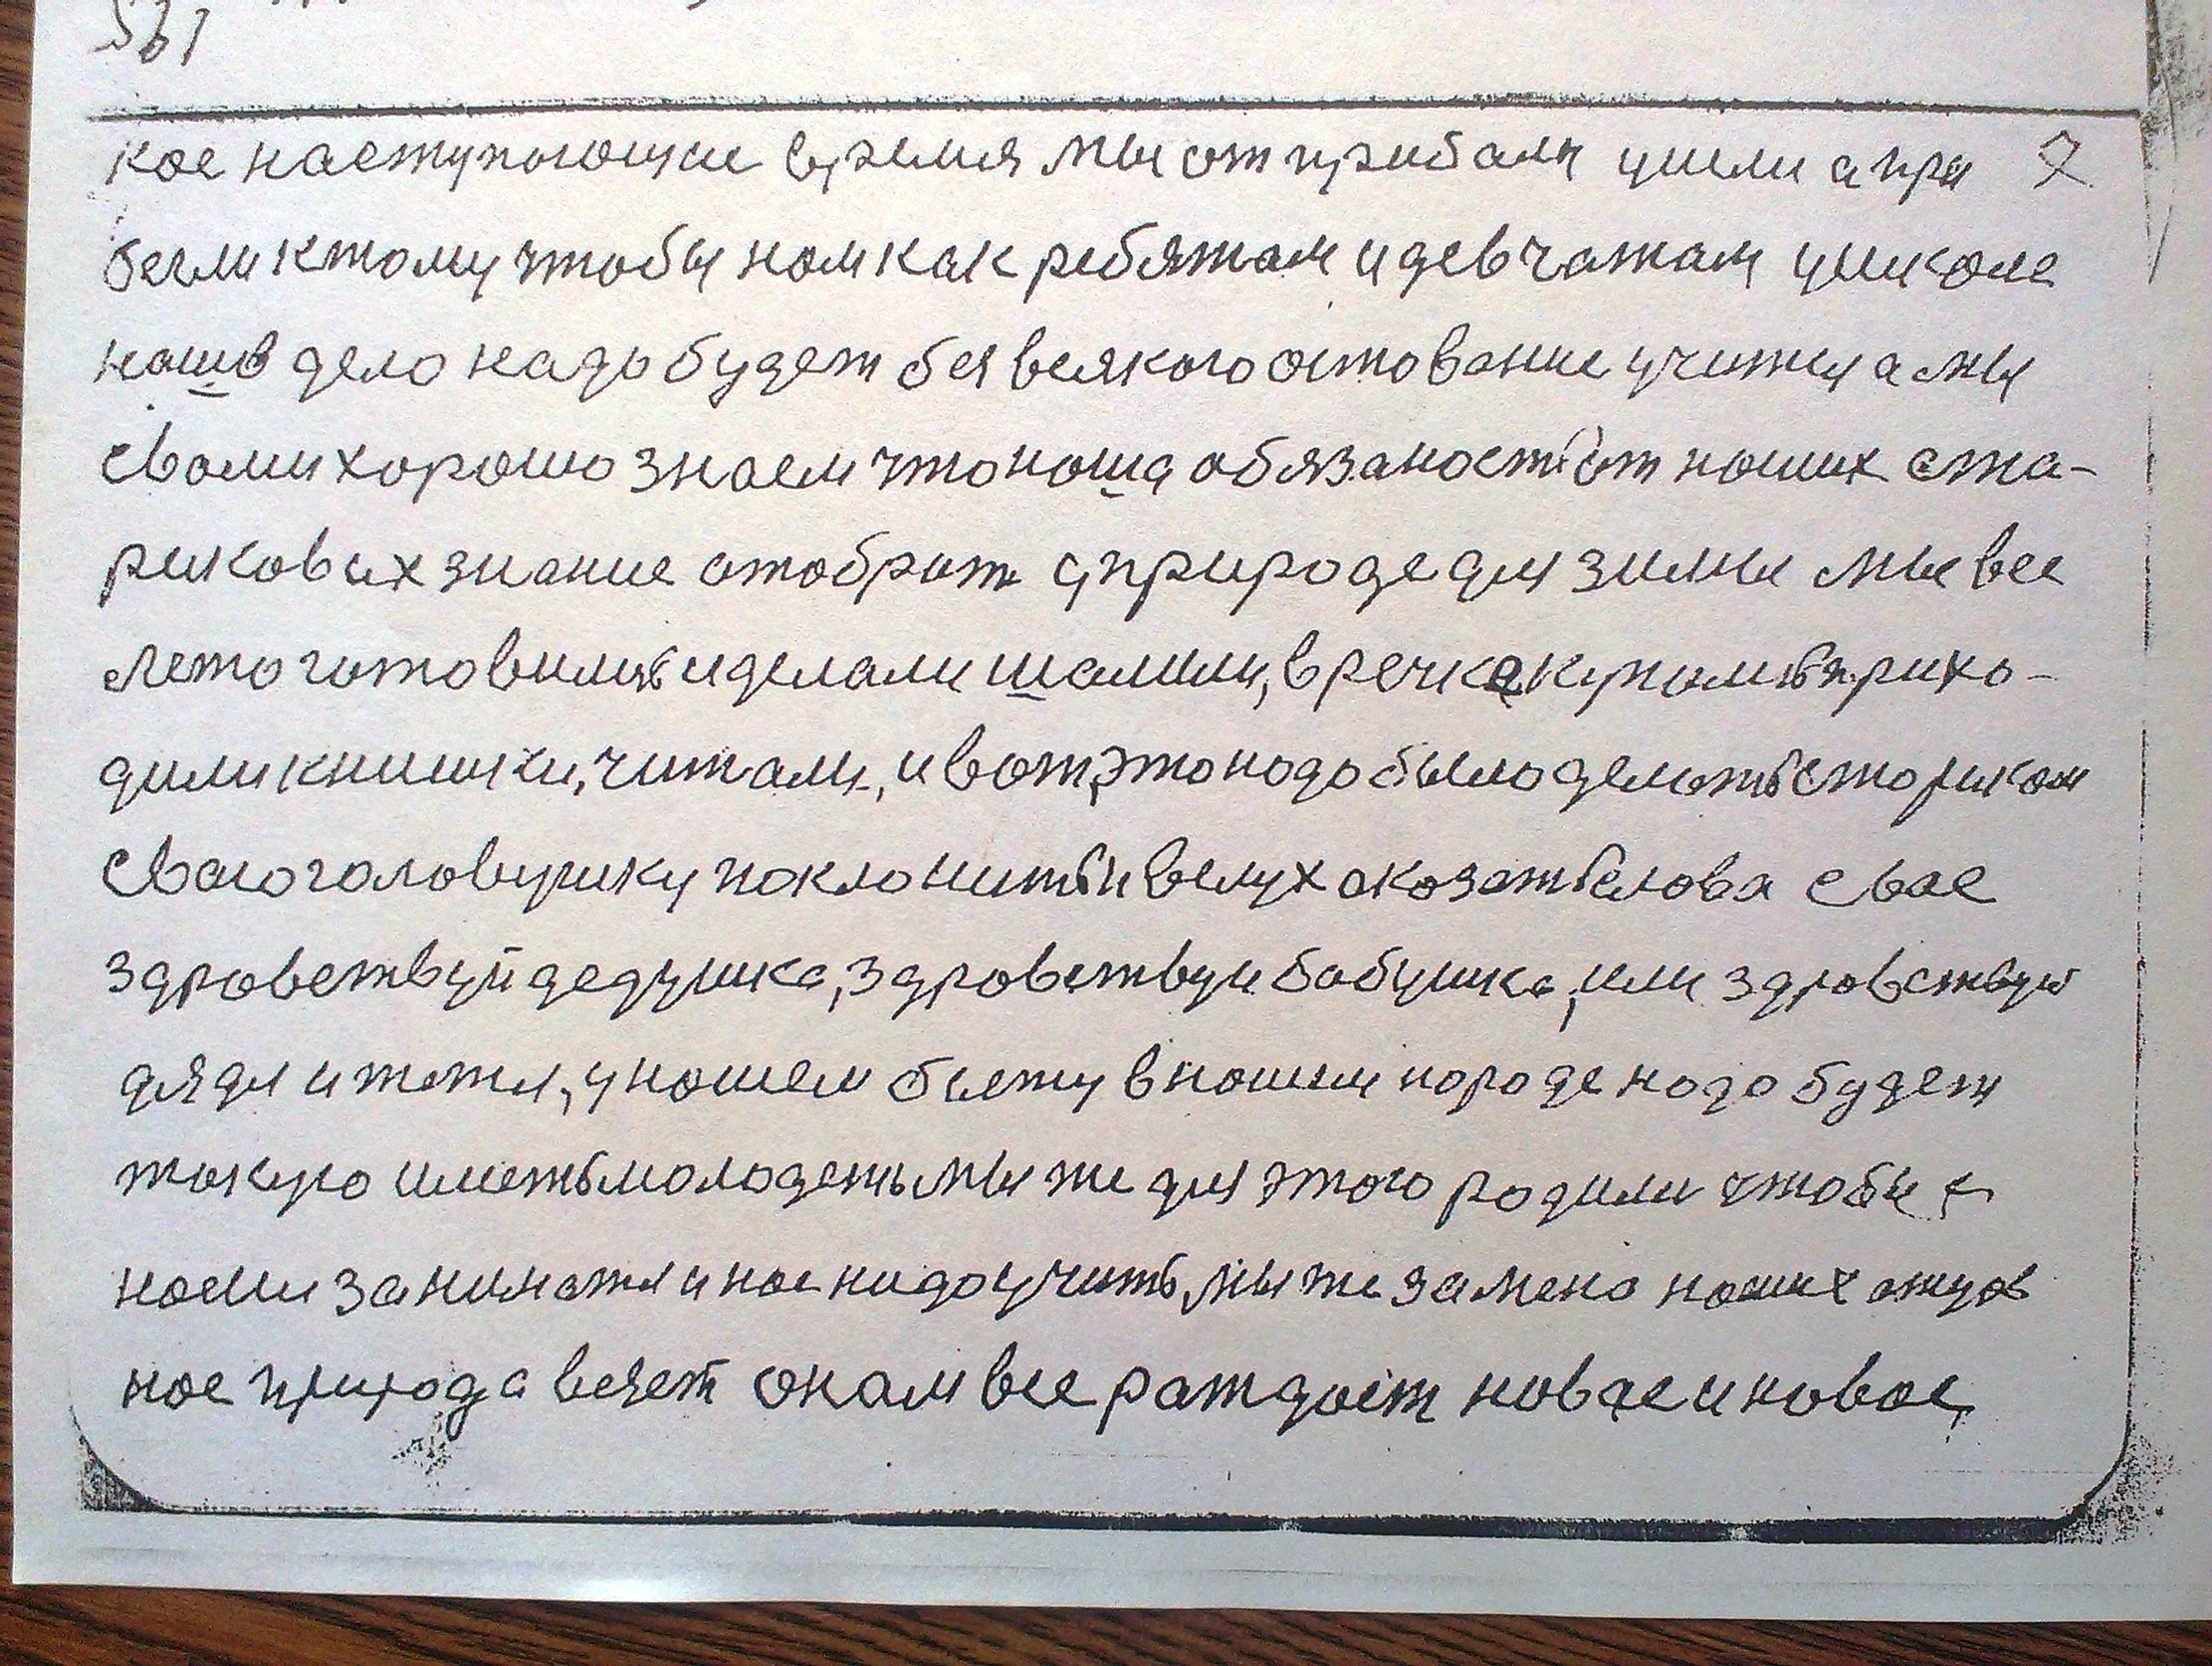 561
кое наступающие время мы от прибали ушли а при 2
бегли к тому чтобы нам как ребятам и девчатам у школе
нашо дело надо будет без всякого остование учится а мы
с вами хорошо знаем что наша обязаность от наших ста-
риков их знание отобрать у природе для зимы мы все
лето готовились и делали шалили, в речке купались прихо-
дили книшки, читали, и вот, это надо было делать старикам
сваю головушку поклонить и в слух сказать слова свае
здровствуй дедушка, здровствуи бабушка, или здровствуй
дядя и тетя, у нашем быту в нашим породе надо будет
такую иметь молодежь мы же для этого родили чтобы с
нами заниматся и нас надо учить, мы же замена наших отцов
нас природа всяет она нам все раждаит новае и новае,